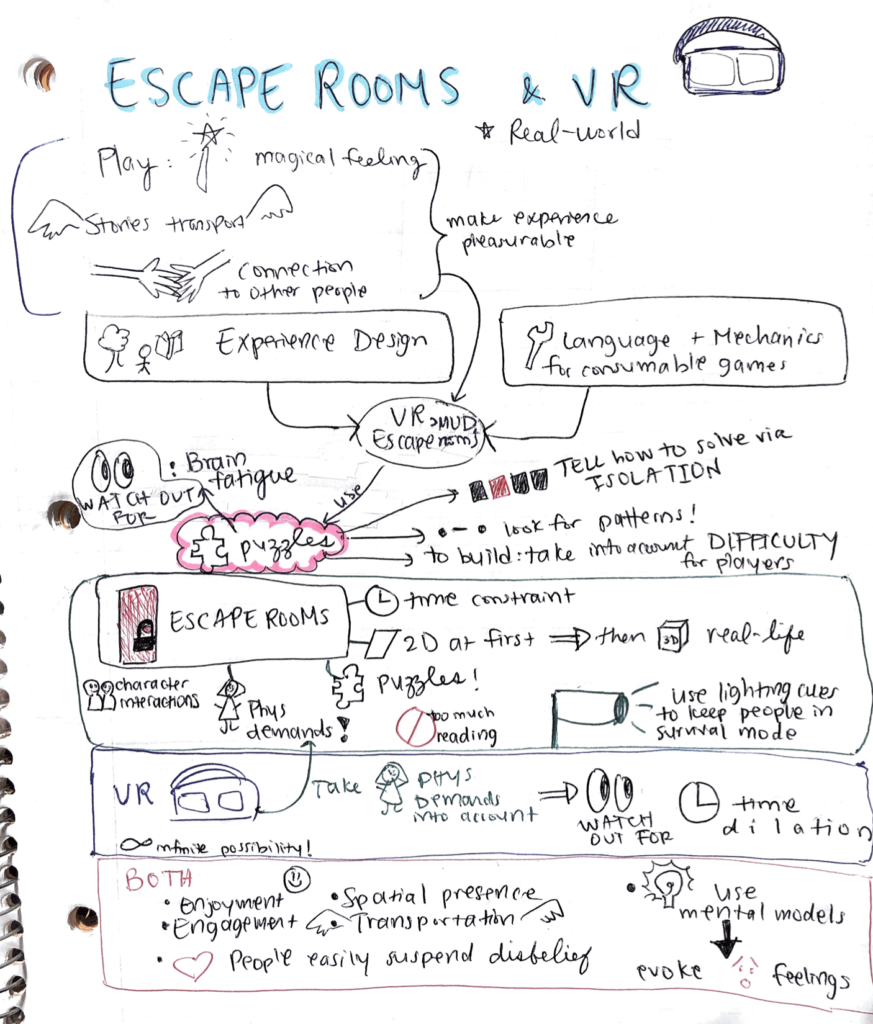 ESCAPE ROOMS & VR
★ Real-world
Play: magical feeling
Stories transport
connection
to other people
make experience
pleasurable
Experience Design
Language + Mechanics
for consumable games
VR >MUD,
Escape rooms
use
: Brain
fatigue
WATCH OUT
FOR
puzzles
TELL how to solve via
ISOLATION
look for patterns!
to build: take into account DIFFICULTY
for players
ESCAPE ROOMS
time constraint
2D at first ⇒ then 3D real-life
puzzles!
character
interactions
Phys
demands!
too much
reading
use lighting cues
to keep people in
survival mode
VR
∞ infinite possibility!
Take PHYS
Demands
into account
⇒ WATCH
OUT FOR
time
dilation
BOTH
• enjoyment
• Engagement
• Spatial presence
• Transportation
• People easily suspend disbelief
• use
mental models
evoke feelings